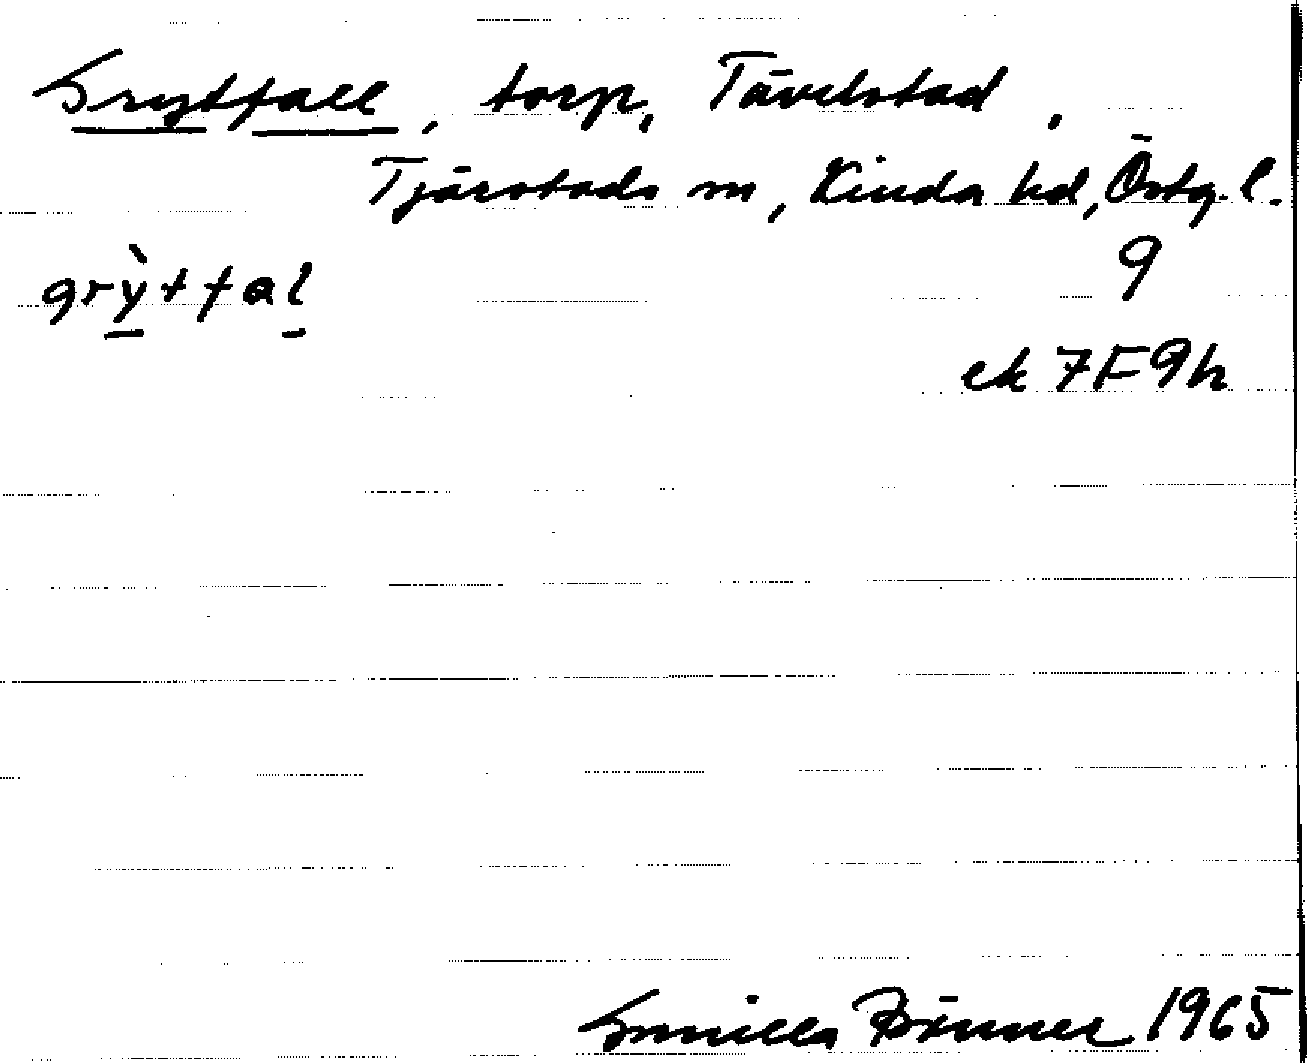 Grytfall, torp, Tävelstad,
Tjärstads sn, Kinda hd, Östg. l.
grỳtfal
9
ek 7F9h
Gunilla 1965